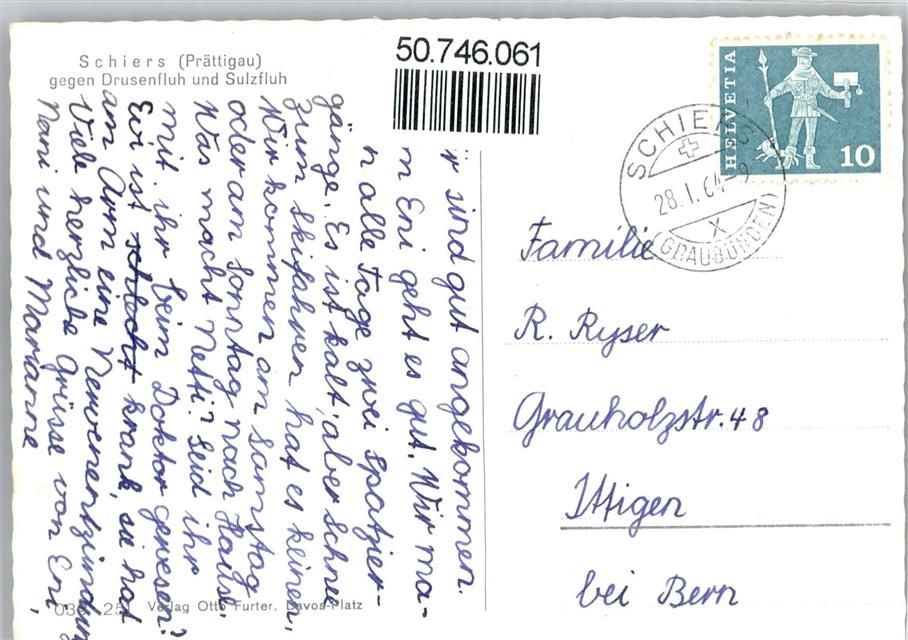 Schiers (Prättigau)
gegen Drusenfluh und Sulzfluh
50.746.061
HELVETIA
10
SCHIERS
28.I.64
X
(GRAUBÜNDEN)
ir sind gut angekommen.
m Eni geht es gut. Wir ma-
n alle Tage zwei Spazier-
gänge. Es ist kalt, aber Schnee
zum Skifahren hat es keinen.
Wir kommen am Samstag
oder am Sonntag nach Hause.
Was macht Netti? Seid ihr
mit ihr beim Doktor gewesen?
Evi ist schlecht krank, sie hat
am Arm eine Nervenentzündung
Viele herzliche Grüsse von Eni,
Nani und Marianne
Familie
R. Ryser
Grauholzstr. 48
Ittigen
bei Bern
Verlag Otto Furter, Davos-Platz